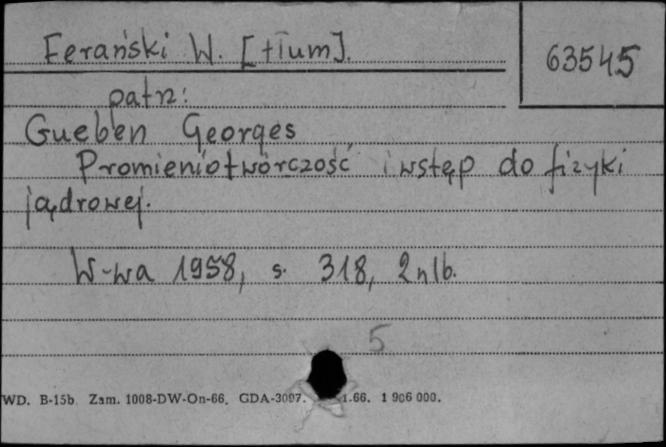 Ferański W. [tłum].
63545
patrz:
Gueben Georges
Promieniotwórczość i wstęp do fizyki
jądrowej.
W-wa 1958, s. 318, 2 nlb.
5
WD. B-15b Zam. 1008-DW-On-66. GDA-3007. 1.66. 1 906 000.